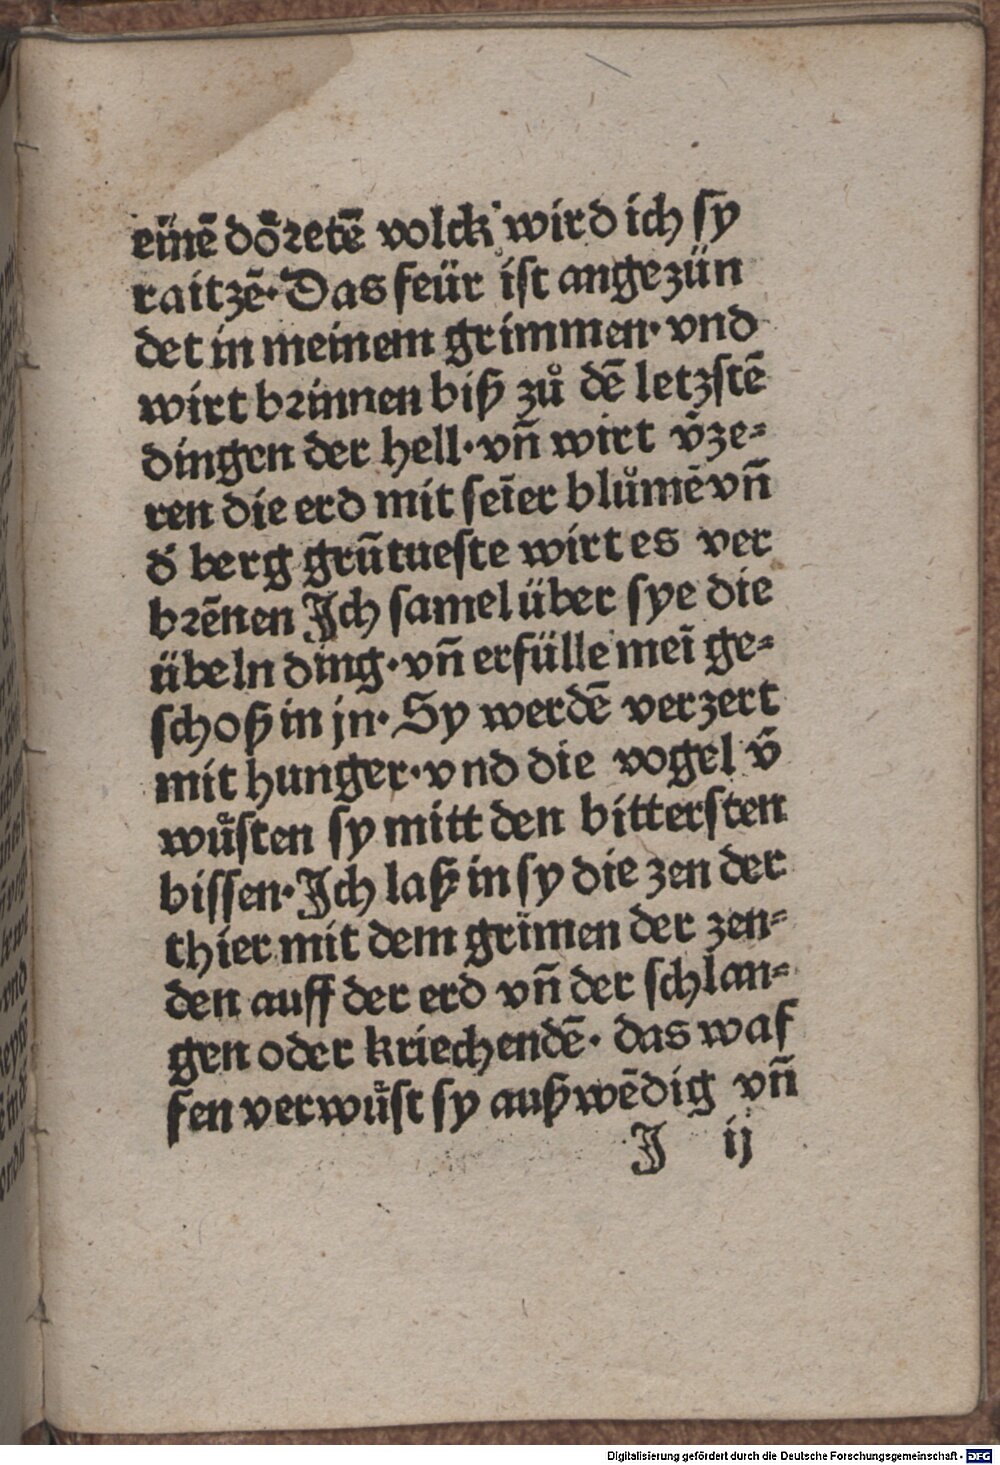 eınē dőretē volck wird ich sy
raitzē· Das feür ist angezün
det in meinem grimmen· vnd
wirt brinnen biß zů dē letzstē
dingen der hell· vñ wirt v̄ze⸗
ren die erd mit seīer blůmē vñ
d̓ berg grūtueste wirt es ver
brēnen Ich samel über sye die
übeln ding· vñ erfülle meī ge⸗
schoß in jn· Sy werdē verzert
mit hunger· vnd die vogel v̄
wůsten sy mitt den bittersten
bissen· Ich laß in sy die zen der
thier mit dem grīmen der zen⸗
den auff der erd vñ der schlan⸗
gen oder kriechendē· das waf
fen verwůst sy außwēdig vñ
J ij
Digitalisierung gefördert durch die Deutsche Forschungsgemeinschaft · DFG